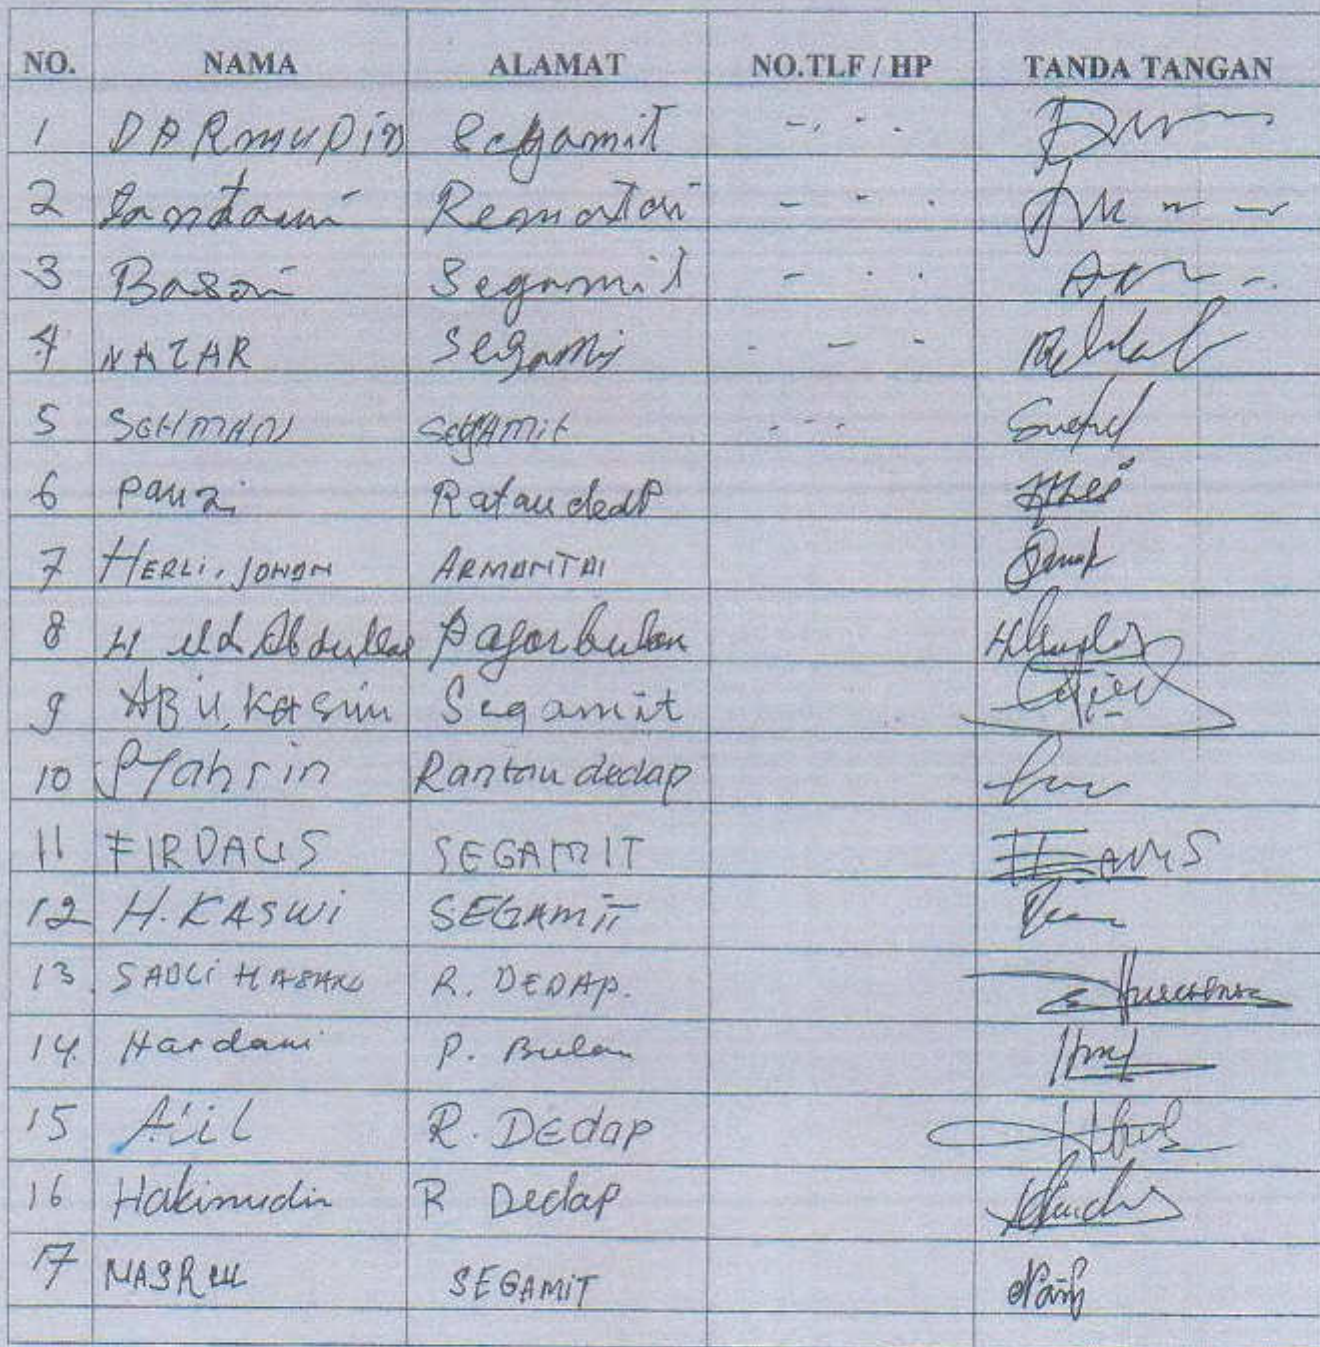 NO. NAMA ALAMAT NO.TLF / HP TANDA TANGAN
1 DARmupin Segamit - . - .
2 Remantai - - .
3 Basri Segamit - . .
4 NAZAR Segamit . - - -
5 SAHMAN SEGAMit - - -
6 Pauzi Rataudedap
7 HERLi, JOHAN ARMANTAI
8 H Md Abdullah Pagarbulan
9 ABU, Kasim Segamit
10 Syahrin Rantau dedap
11 FIRDAUS SEGAMIT
12 H. KASWi SEGAMiT
13. SADLi HASAN R. DEDAP.
14. Hardani P. Bulan
15 A'il R. DEdap
16 Hakimudin R Dedap
17 NASRUL SEGAMIT